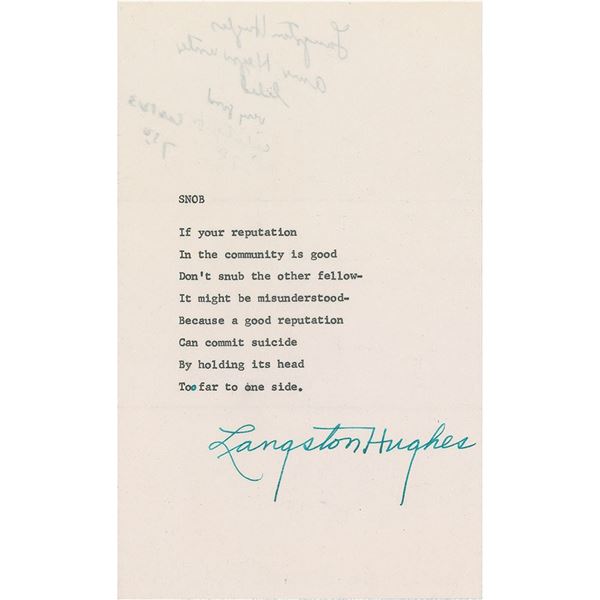 SNOB
If your reputation
In the community is good
Don't snub the other fellow-
It might be misunderstood-
Because a good reputation
Can commit suicide
By holding its head
Too far to one side.
Langston Hughes
Langston Hughes
very good